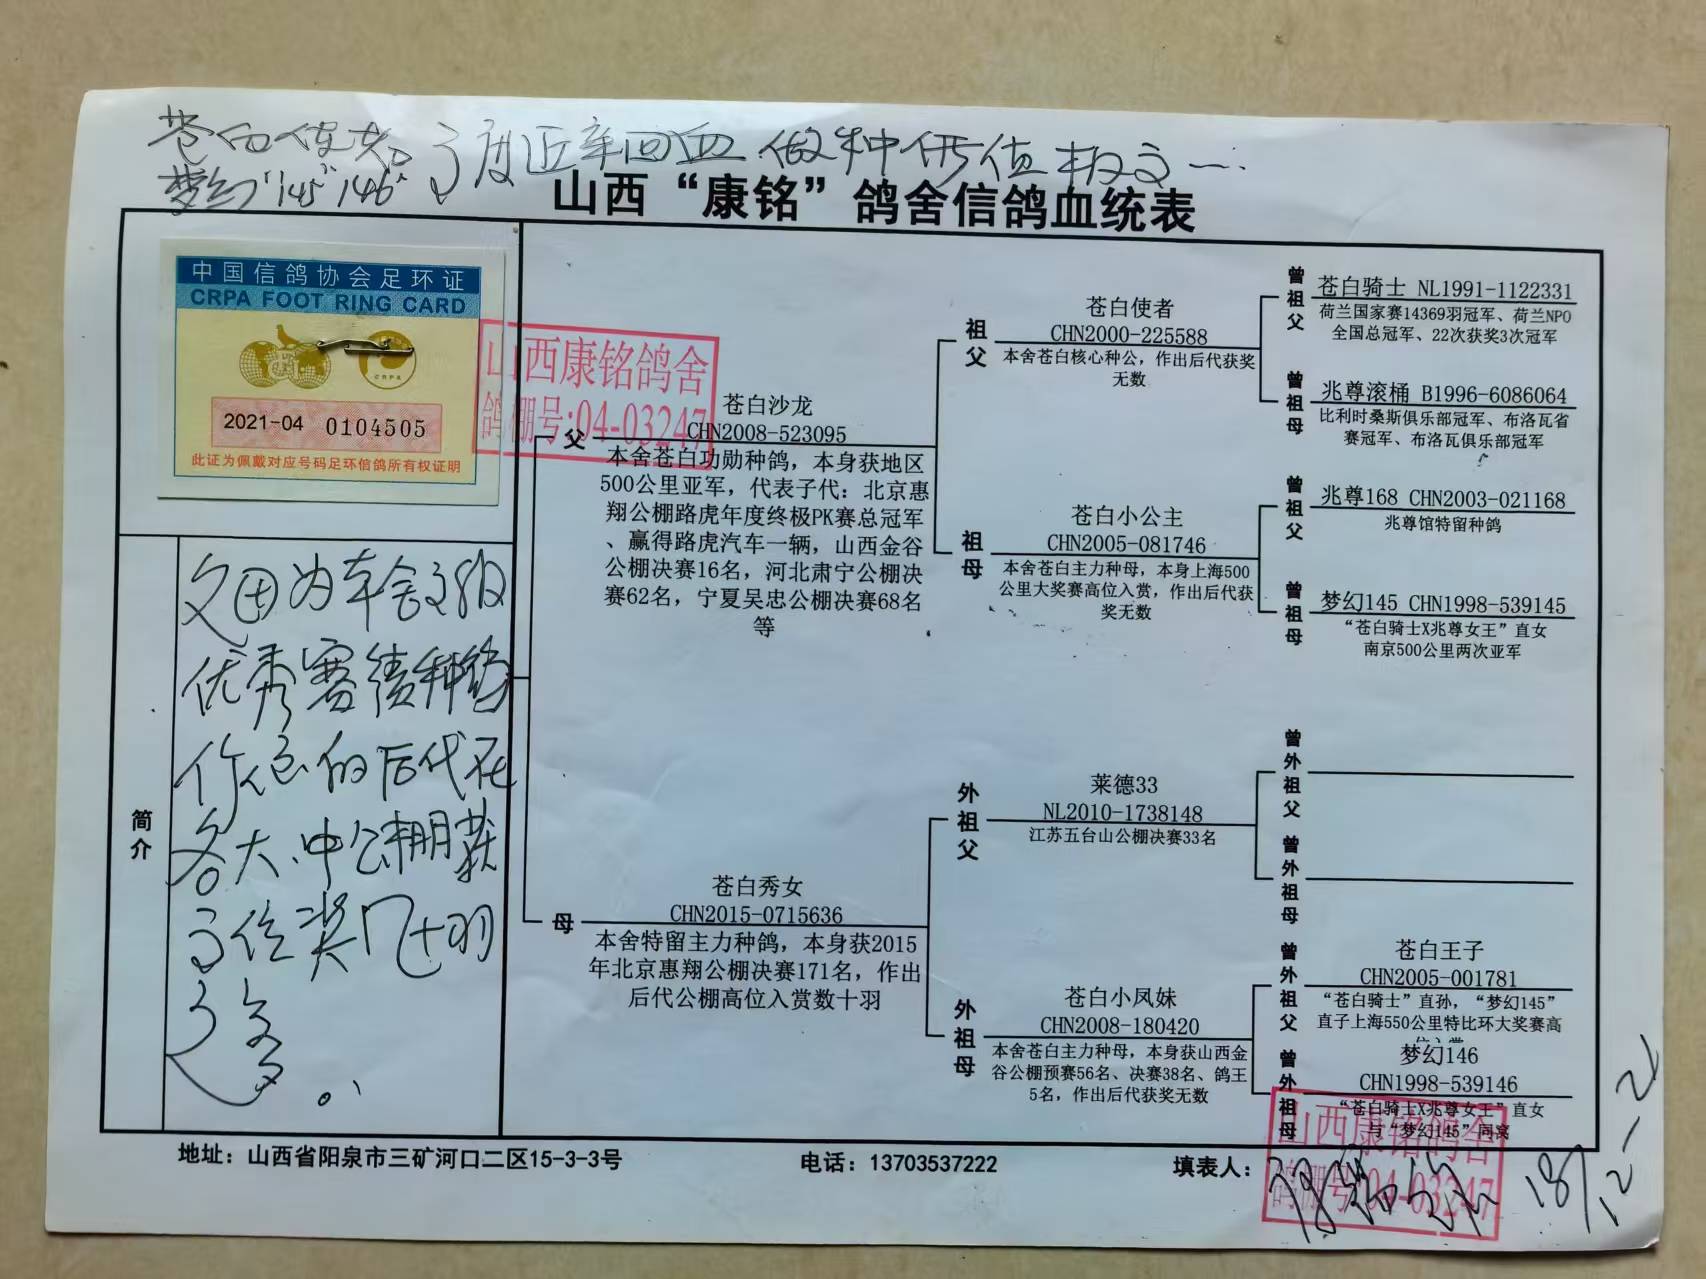 苍白使者
梦幻"145""146"
高度近亲回血 做种价值极高
山西“康铭”鸽舍信鸽血统表
中国信鸽协会足环证
CRPA FOOT RING CARD
CRPA
2021-04 0104505
此证为佩戴对应号码足环信鸽所有权证明
山西康铭鸽舍
鸽棚号:04-03247
简介
为本舍
优秀赛绩种鸽
作出的后代在
各大、中公棚获
高位奖几十羽
之多。
父
苍白沙龙
CHN2008-523095
本舍苍白功勋种鸽，本身获地区
500公里亚军，代表子代：北京惠
翔公棚路虎年度终极PK赛总冠军
、赢得路虎汽车一辆，山西金谷
公棚决赛16名，河北肃宁公棚决
赛62名，宁夏吴忠公棚决赛68名
等
祖父
苍白使者
CHN2000-225588
本舍苍白核心种公，作出后代获奖
无数
曾祖父
苍白骑士 NL1991-1122331
荷兰国家赛14369羽冠军、荷兰NPO
全国总冠军、22次获奖3次冠军
曾祖母
兆尊滚桶 B1996-6086064
比利时桑斯俱乐部冠军、布洛瓦省
赛冠军、布洛瓦俱乐部冠军
祖母
苍白小公主
CHN2005-081746
本舍苍白主力种母，本身上海500
公里大奖赛高位入赏，作出后代获
奖无数
曾祖父
兆尊168 CHN2003-021168
兆尊馆特留种鸽
曾祖母
梦幻145 CHN1998-539145
“苍白骑士X兆尊女王”直女
南京500公里两次亚军
母
苍白秀女
CHN2015-0715636
本舍特留主力种鸽，本身获2015
年北京惠翔公棚决赛171名，作出
后代公棚高位入赏数十羽
外祖父
莱德33
NL2010-1738148
江苏五台山公棚决赛33名
曾外祖父
曾外祖母
外祖母
苍白小凤妹
CHN2008-180420
本舍苍白主力种母，本身获山西金
谷公棚预赛56名、决赛38名、鸽王
5名，作出后代获奖无数
曾外祖父
苍白王子
CHN2005-001781
“苍白骑士”直孙，“梦幻145”
直子上海550公里特比环大奖赛高
位入赏
曾外祖母
梦幻146
CHN1998-539146
“苍白骑士X兆尊女王”直女
与“梦幻145”同窝
山西康铭鸽舍
鸽棚号:04-03247
地址：山西省阳泉市三矿河口二区15-3-3号
电话：13703537222
填表人：